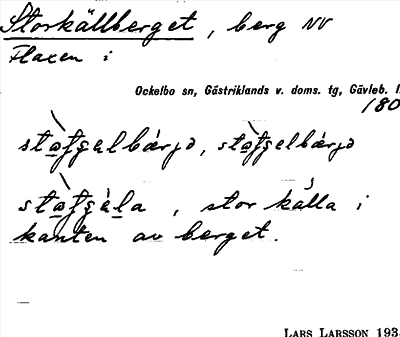 Storkällberget, berg NV
Flaxen i
Ockelbo sn, Gästriklands v. doms. tg, Gävleb. l.
180
, stor källa i
kanten av berget.
LARS LARSSON 193